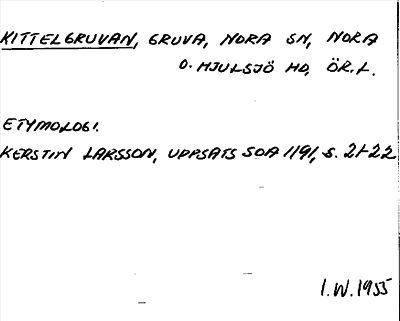 KITTELGRUVAN, GRUVA, NORA SN, NORA
O. HJULSJÖ HD, ÖR.L.
ETYMOLOGI.
KERSTIN LARSSON, UPPSATS SOA 1191, S. 21-22
I.W.1955